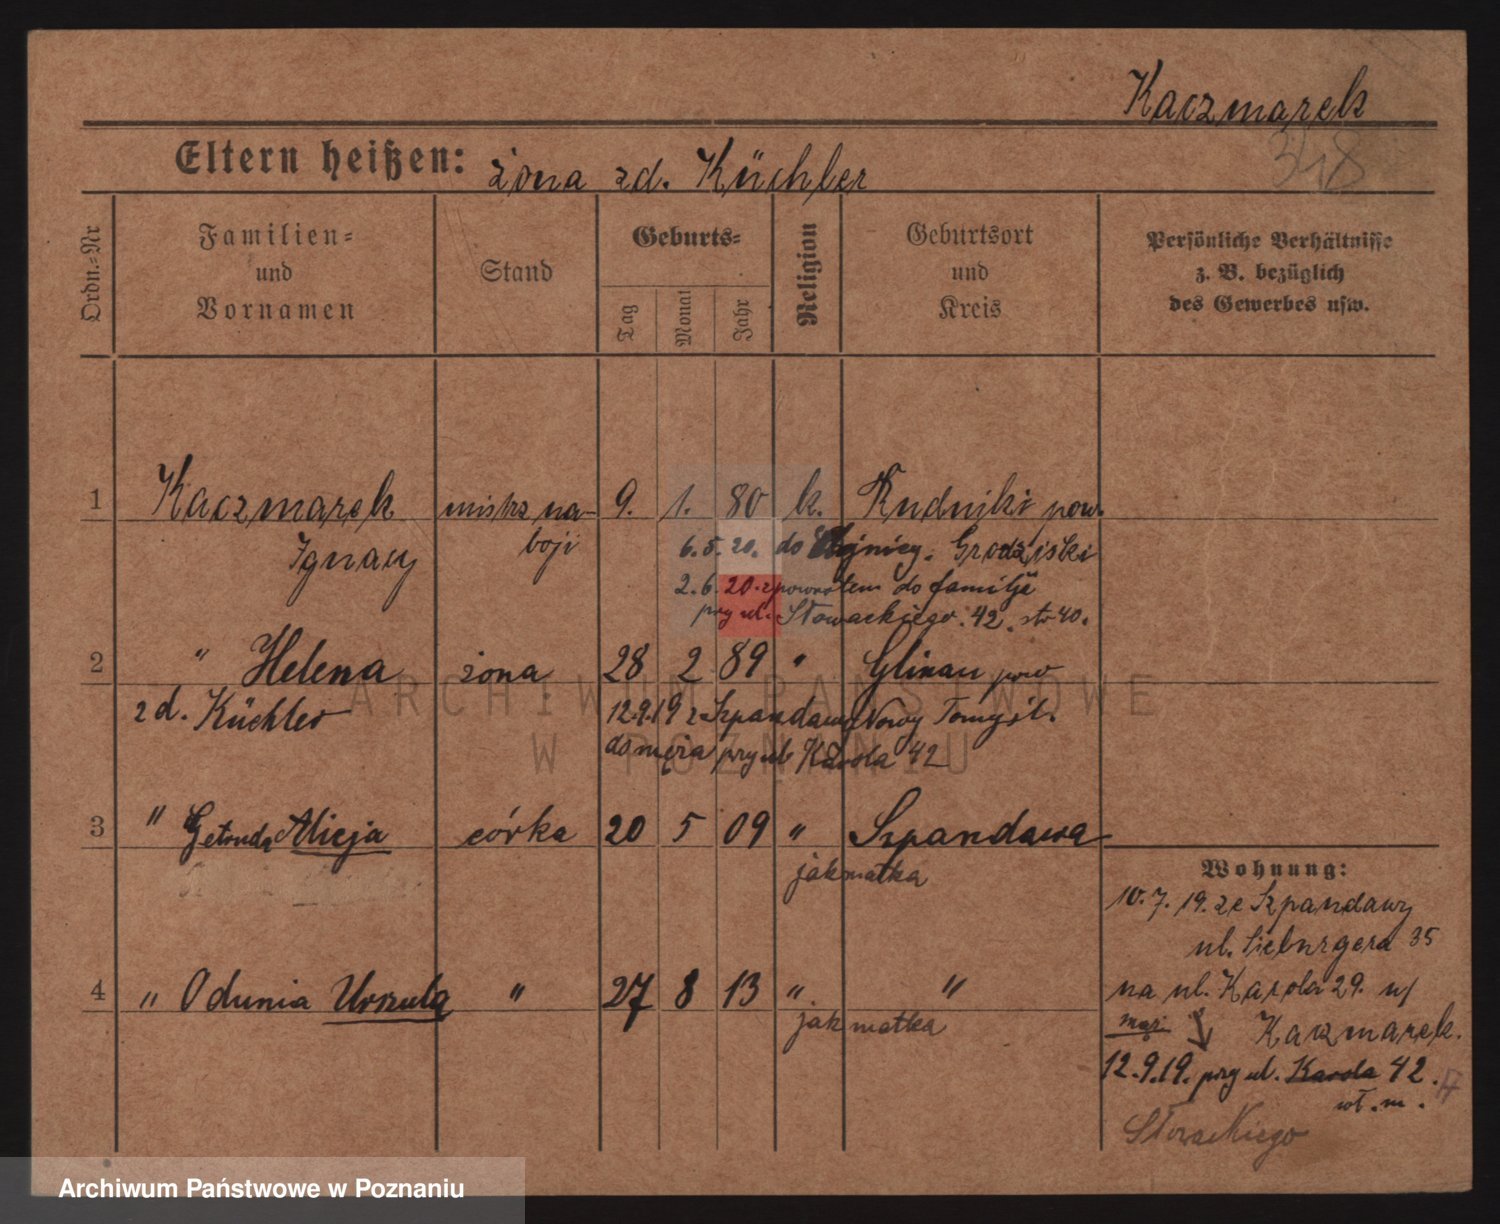 Kaczmarek
Eltern heißen: żona zd. Küchler
318
Ordn.-Nr
Familien-
und
Vornamen
Stand
Geburts-
Tag
Monat
Jahr
Religion
Geburtsort
und
Kreis
Persönliche Verhältnisse
z. B. bezüglich
des Gewerbes usw.
1 Kaczmarek mistrz na- 9. 1. 80 k. Rudniki pow.
Ignacy boji Grodziski
6.5.20. do
2.6.20. zpowrotem do familji
przy ul. Słowackiego. 42. str 40.
2 " Helena żona 28 2 89 " Glinau pow
zd. Küchler Nowy Tomyśl.
12.9.19 z Szpandawy
do męża przy ul Karola 42
3 " Getruda Alicja córka 20 5 09 " Szpandawa
jak matka
4 " Odunia Urszula " 27 8 13 " "
jak matka
Wohnung:
10.7.19. ze Szpandawy
ul. 35
na ul. Karola 29. u/
mąż Kaczmarek.
12.9.19. przy ul. Karola 42.
wł. m.
Słowackiego
ARCHIWUM PAŃSTWOWE
W POZNANIU
Archiwum Państwowe w Poznaniu